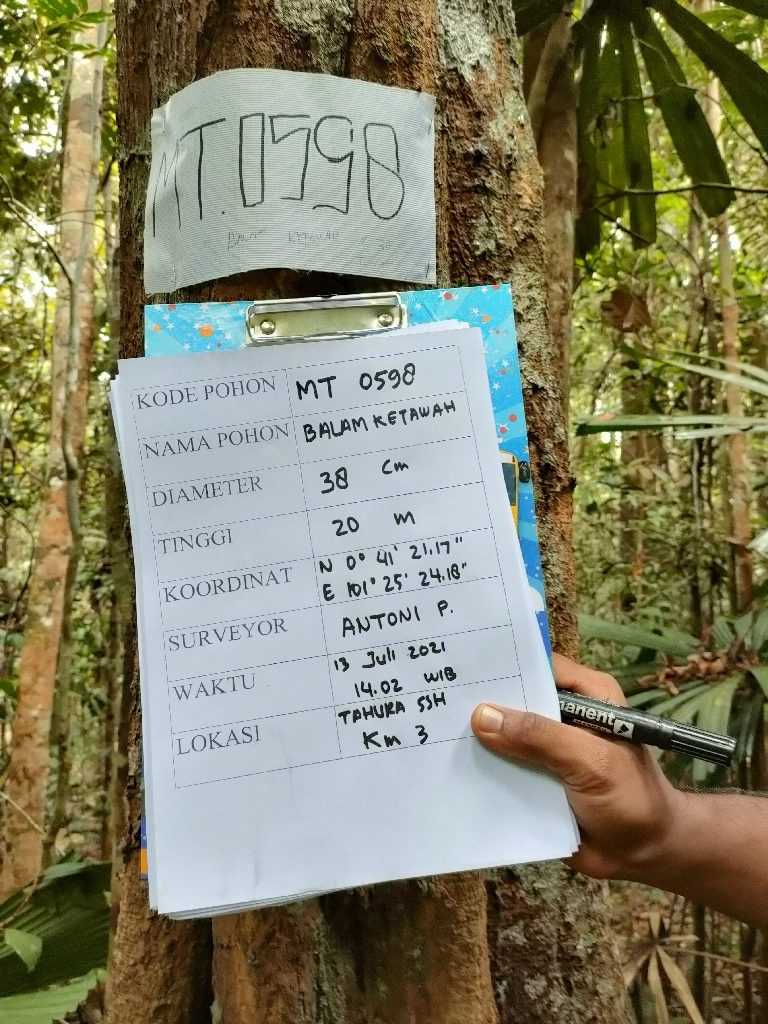 MT.0598
BALAM KETAWAH
KODE POHON MT 0598
NAMA POHON BALAM KETAWAH
DIAMETER 38 Cm
TINGGI 20 m
KOORDINAT N 0° 41' 21.17"
E 101° 25' 24.18"
SURVEYOR ANTONI P.
WAKTU 13 Juli 2021
14.02 WIB
LOKASI TAHURA SSH
Km 3
manent